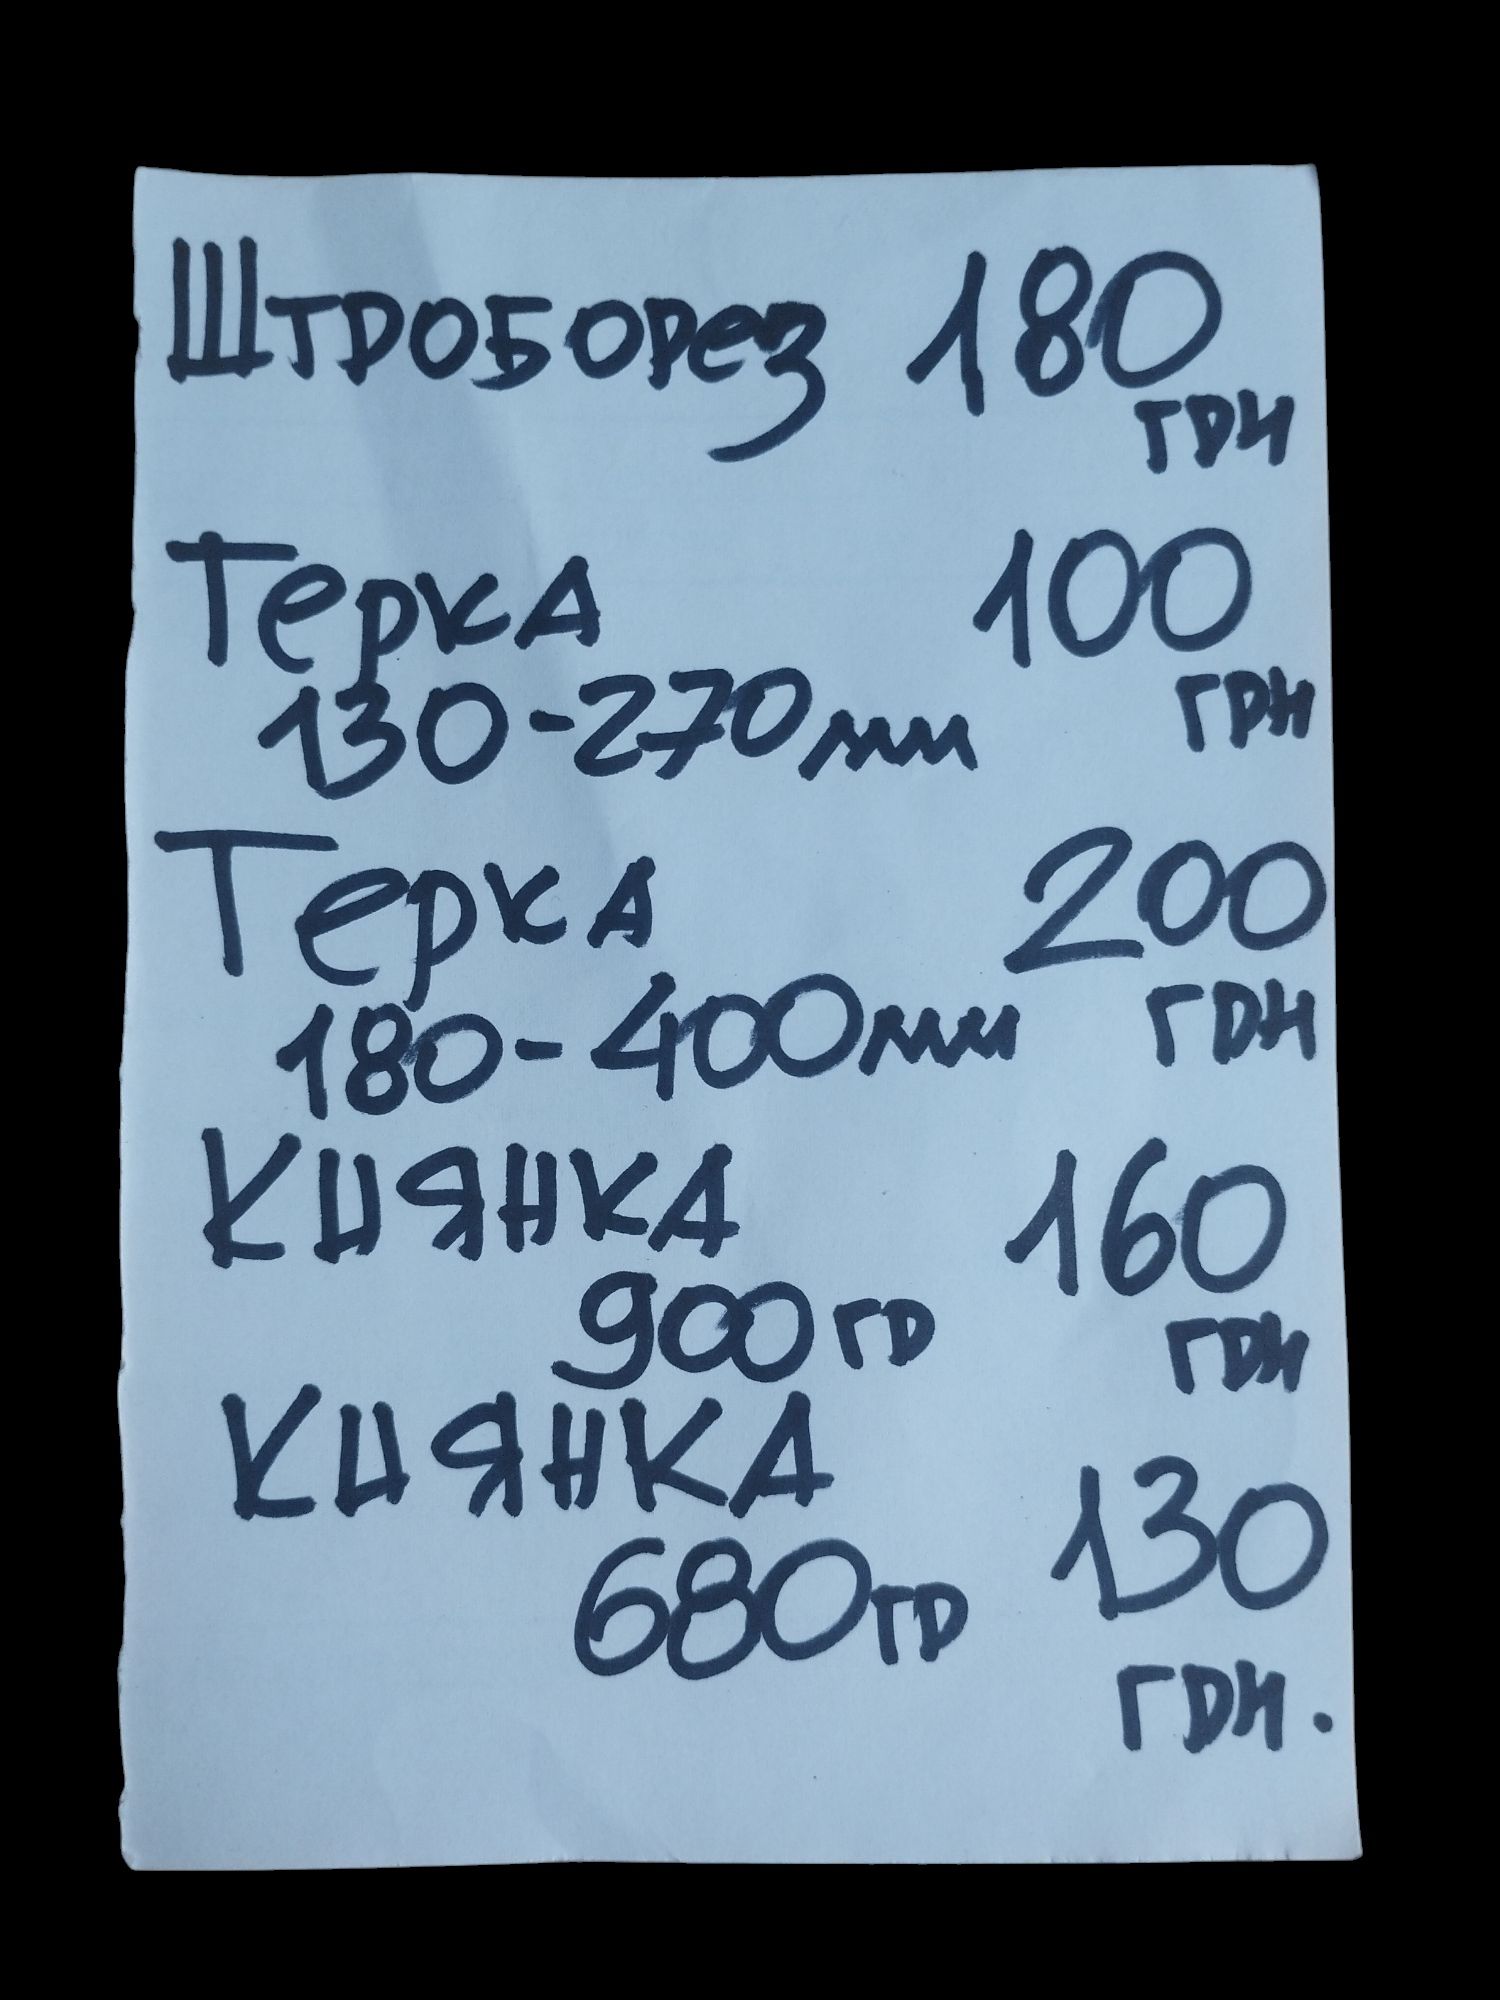 Штроборез 180
грн
Терка 100
130-270мм грн
Терка 200
180-400мм грн
Киянка 160
900гр грн
Киянка 130
680гр
грн.